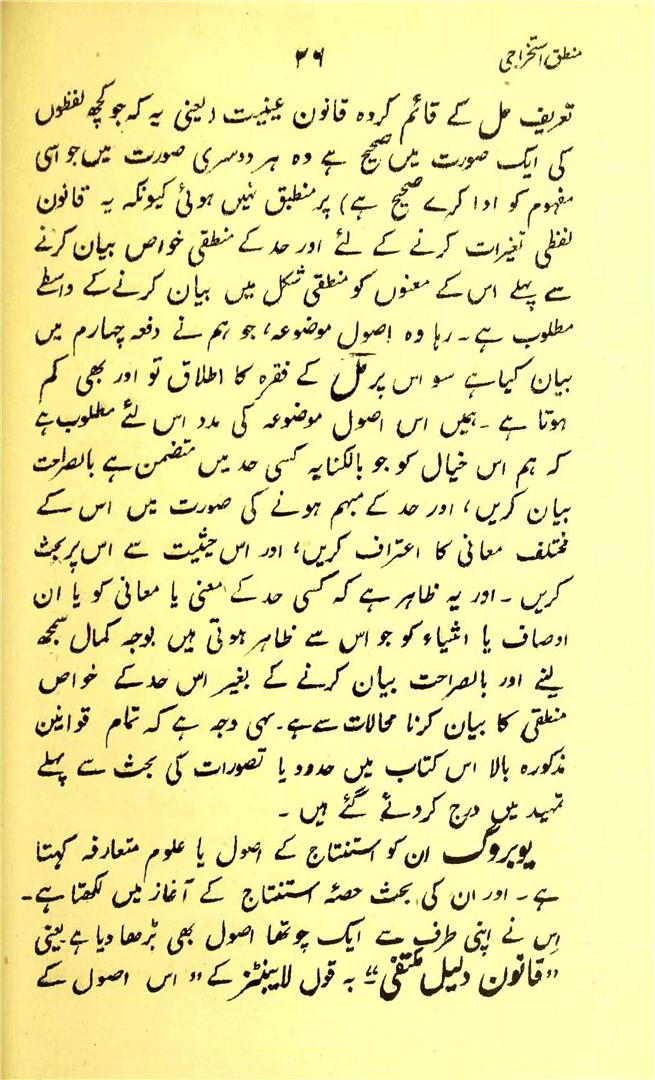 منطق استخراجی
۳۶
تعریف مل کے قائم کردہ قانون عینیت (یعنی یہ کہ جو کچھ لفظوں
کی ایک صورت میں صحیح ہے وہ ہر دوسری صورت میں جو اسی
مفہوم کو ادا کرے صحیح ہے) پر منطبق نہیں ہوئی کیونکہ یہ قانون
لفظی تغیرات کرنے کے لئے اور حد کے منطقی خواص بیان کرنے
سے پہلے اس کے معنوں کو منطقی شکل میں بیان کرنے کے واسطے
مطلوب ہے۔ رہا وہ اصول موضوعہ، جو ہم نے دفعہ چہارم میں
بیان کیا ہے سو اس پر مل کے فقرہ کا اطلاق تو اور بھی کم
ہوتا ہے۔ ہمیں اس اصول موضوعہ کی مدد اس لئے مطلوب ہے
کہ ہم اس خیال کو جو بالکنایہ کسی حد میں متضمن ہے بالصراحت
بیان کریں، اور حد کے مبہم ہونے کی صورت میں اس کے
مختلف معانی کا اعتراف کریں، اور اس حیثیت سے اس پر بحث
کریں ۔ اور یہ ظاہر ہے کہ کسی حد کے معنی یا معانی کو یا ان
اوصاف یا اشیاء کو جو اس سے ظاہر ہوتی ہیں بوجہ کمال سمجھ
لینے اور بالصراحت بیان کرنے کے بغیر اس حد کے خواص
منطقی کا بیان کرنا محالات سے ہے۔ یہی وجہ ہے کہ تمام قوانین
مذکورہ بالا اس کتاب میں حدود یا تصورات کی بحث سے پہلے
تمہید میں درج کردئے گئے ہیں ۔
یوبروگ ان کو استنتاج کے اصول یا علوم متعارفہ کہتا
ہے ۔ اور ان کی بحث حصۂ استنتاج کے آغاز میں لکھتا ہے ۔
اس نے اپنی طرف سے ایک چوتھا اصول بھی بڑھا دیا ہے یعنی
”قانون دلیل مکتفی“ بہ قول لایبنٹز کے ” اس اصول کے